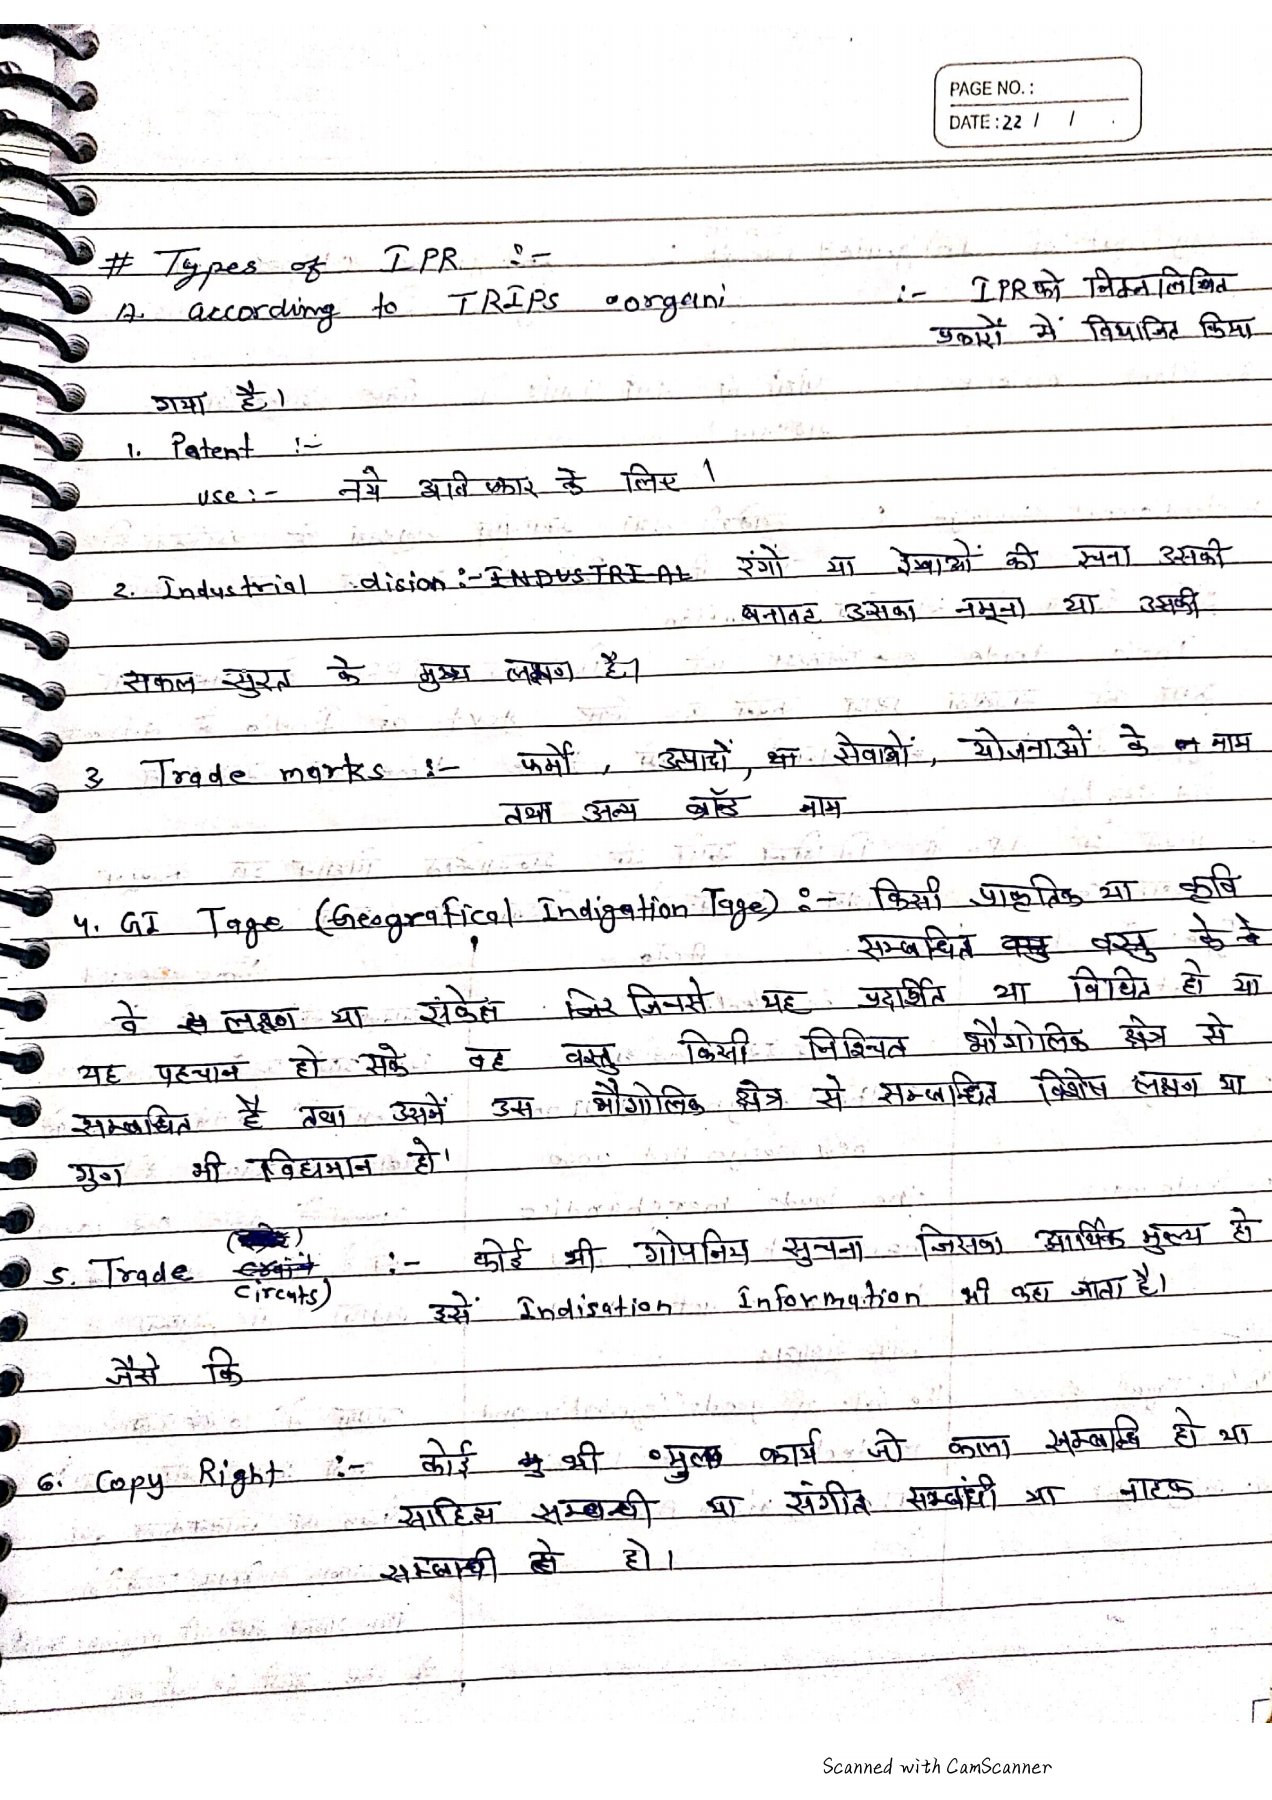 PAGE NO. :
DATE : 22 / / .
# Types of IPR :-
A. according to TRIPs organi :- IPR को निम्नलिखित
प्रकारों में विभाजित किया
गया है।
1. Patent :-
use :- नये आविष्कार के लिए ।
2. Industrial dision :- INDUSTRIAL रंगों या रेखाओं की रचना उसकी
बनावट उसका नमूना या उसकी
सकल सुरत के मुख्य लक्षण है।
3 Trade marks :- फर्मो, उत्पादों, सेवाओं, योजनाओं के नाम
तथा अन्य ब्रांड नाम
4. GI Tage (Geografical Indigation Tage) :- किसी प्राकृतिक या कृषि
सम्बधित वस्तु के
वे लक्षण या संकेत जिनसे यह प्रदर्शित या विधित हो या
यह पहचान हो सके वह वस्तु किसी निश्चित भौगोलिक क्षेत्र से
सम्बधित है तथा उसमें उस भौगोलिक क्षेत्र से सम्बन्धित विशेष लक्षण या
गुण भी विद्यमान हो।
5. Trade :- कोई भी गोपनिय सुचना जिसका आर्थिक मुल्य हो
circuts)
उसें Indisation Information भी कहा जाता है।
जैसे कि
6. Copy Right :- कोई भी मुल कार्य जो कला सम्बन्धि हो या
साहित्य सम्बन्धी या संगीत सम्बंधी या नाटक
सम्बन्धी हो।
Scanned with CamScanner